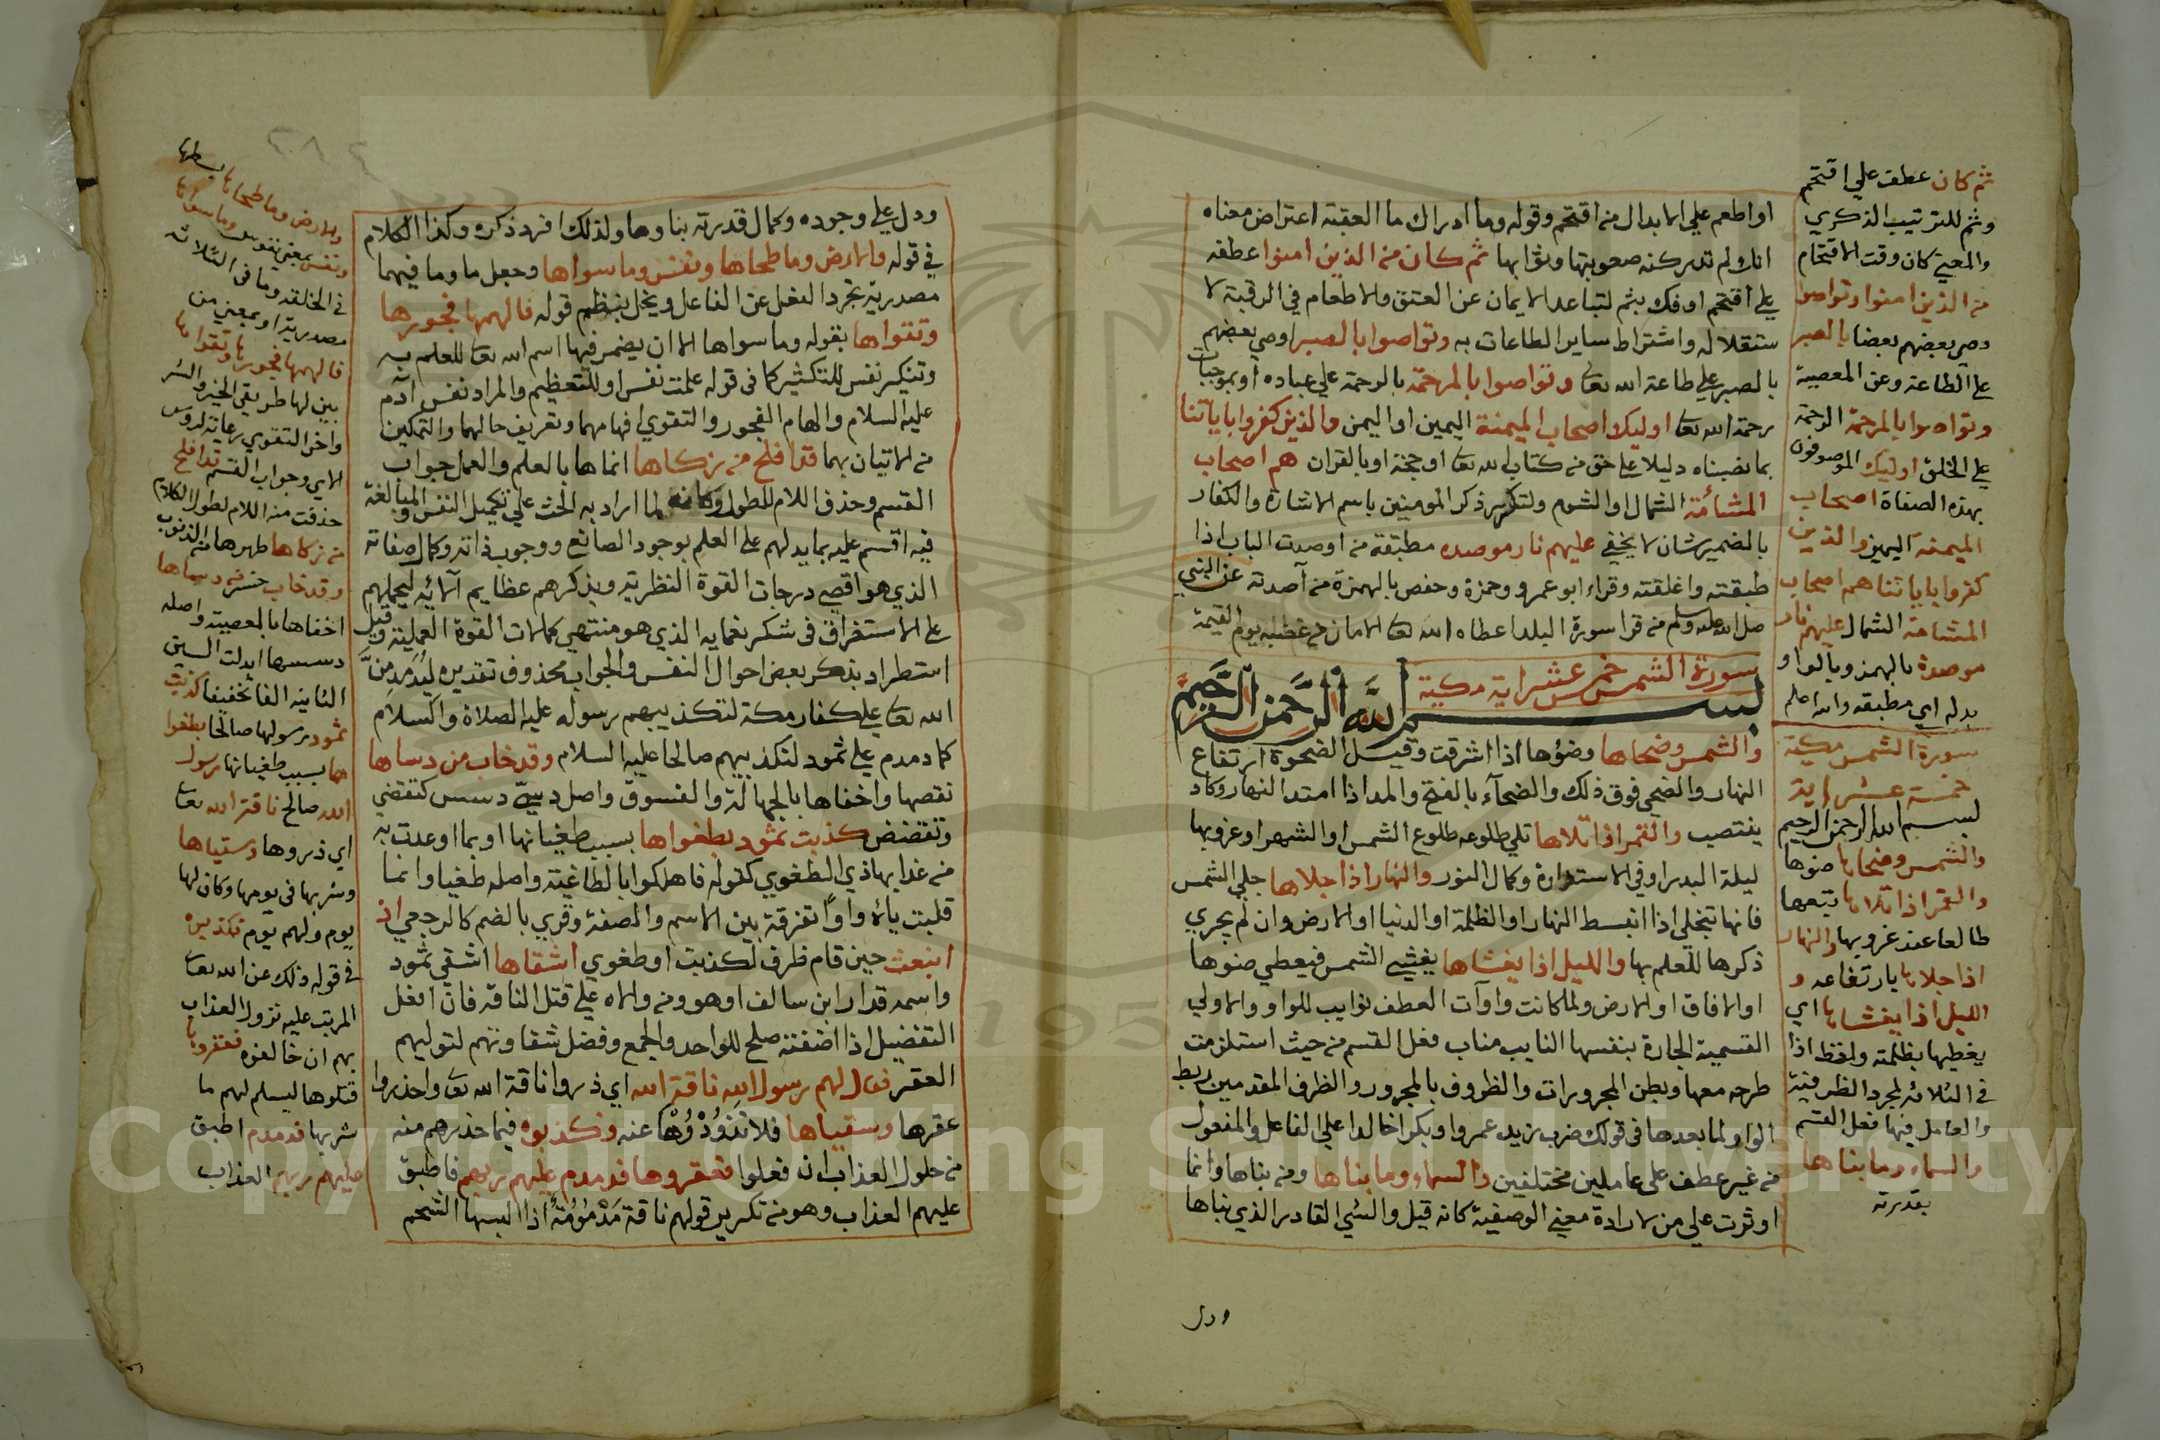 او اطعم علي الابدال من اقتحم وقوله وما ادراك ما العقبة اعتراض معناه
انك لم تدر كنه صعوبتها وثوابها ثم كان من الذين امنوا عطفه
علي اقتحم او فك بثم لتباعد الايمان عن العتق والاطعام في الرقبة لا
ستقلاله واشتراط ساير الطاعات به وتواصوا بالصبر اوصي بعضهم
بالصبر علي طاعة الله تعا وتواصوا بالمرحمة بالرحمة علي عباده او بموجبات
رحمة الله تعا اوليك اصحاب الميمنة اليمين او اليمن والذين كفروا باياتنا
بما نصبناه دليلا علي حق من كتاب الله تعا او حجة او بالقران هم اصحاب
المشامة الشمال او الشوم ولتكرير ذكر المومنين باسم الاشارة والكفار
بالضمير شان لا يخفي عليهم نار موصده مطبقة من اوصدت الباب اذا
طبقته واغلقته وقراء ابو عمرو وحمزة وحفص بالهمزة من آصدته عن النبي
صل الله عليه وسلم من قرا سورة البلد اعطاه الله تعا الامان من غضبه يوم القيمة
سورة الشمس خمس عشر اية مكية
بسم الله الرحمن الرحيم
والشمس وضحاها وضؤها اذا اشرقت وقيل الضحوة ارتفاع
النهار والضحي فوق ذلك والضحآء بالفتح والمد اذا امتد النهار وكاد
ينتصب والقمر اذا تلاها تلي طلوعه طلوع الشمس او الشهر او غروبها
ليلة البدر او في الاستدارة وكمال النور والنهار اذا جلاها جلي الشمس
فانها تتجلي اذا انبسط النهار او الظلمة او الدنيا او الارض وان لم يجري
ذكرها للعلم بها والليل اذا يغشاها يغشي الشمس فيعطي ضوها
او الافاق او الارض ولما كانت واوآت العطف نوايب للواو والاولي
القسمية الجارة بنفسها النايب مناب فعل القسم من حيث استلزمت
طرحه معها وبطن المجرورات والظروف بالمجرور والظرف المقدمين ربط
الواو لما بعدها في قولك ضرب زيد عمروا وبكر خالدا علي الفاعل والمفعول
من غير عطف علي عاملين مختلفين والسماء وما بناها ومن بناها وانما
اوثرت علي من لارادة معني الوصفية كانه قيل والشي القادر الذي بناها
ودل
ثم كان عطف علي اقتحم
وثم للترتيب الذكري
والمعني كان وقت الاقتحام
من الذين امنوا وتواصوا
وصي بعضهم بعضا بالصبر
علي الطاعة وعن المعصية
وتواصوا بالمرحمة الرحمة
علي الخلق اوليك الموصوفون
بهذه الصفاة اصحاب
الميمنة اليمين والذين
كفروا باياتنا هم اصحاب
المشامة الشمال عليهم نار
موصدة بالهمز وبالواو
بدله اي مطبقه والله اعلم
سورة الشمس مكية
خمسة عشر اية
بسم الله الرحمن الرحيم
والشمس وضحاها ضوها
والقمر اذا تلاها تبعها
طالعا عند غروبها والنهار
اذا جلاها بارتفاعه و
الليل اذا يغشاها اي
يغطيها بظلمته ولفظ اذا
في الثلاثة لمجرد الظرفية
والعامل فيها فعل القسم
والسماء وما بناها
بقدرته
ودل علي وجوده وكمال قدرته بناوها ولذلك افرد ذكره وكذا الكلام
في قوله والارض وما طحاها ونفس وما سواها وجعل ما وما فيهما
مصدرية تجرد الفعل عن الفاعل ويخل بنظم قوله فالهمها فجورها
وتقواها بقوله وما سواها الا ان يضمر فيها اسم الله تعا للعلم به
وتنكير نفس للتكثير كما في قوله علمت نفس او للتعظيم والمراد نفس آدم
عليه السلام والهام الفجور والتقوي افهامهما وتعريف حالهما والتمكين
من الاتيان بهما قد افلح من زكاها انماها بالعلم والعمل جواب
القسم وحذف اللام للطول وكانه لما اراد به الحث علي تكميل النفس والمبالغة
فيه اقسم عليه بما يدلهم علي العلم بوجود الصانع ووجوب ذاته وكمال صفاته
الذي هو اقصي درجات القوة النظرية ويذكرهم عظايم آلائه ليحملهم
علي الاستغراق في شكر نعمايه الذي هو منتهي كمالات القوة العملية وقيل
استطراد بذكر بعض احوال النفس والجواب محذوف تقديره ليدمدمن
الله تعا علي كفار مكة لتكذيبهم رسوله عليه الصلاة والسلام
كما دمدم علي ثمود لتكذيبهم صالحا عليه السلام وقد خاب من دساها
نقصها واخفاها بالجهالة والفسوق واصل دسي دسس كتقضي
وتقضض كذبت ثمود بطغواها بسبب طغيانها او بما اوعدت به
من عذابها ذي الطغوي كقوله فاهلكوا بالطاغية واصله طغيا وانما
قلبت يائه واوا تفرقة بين الاسم والصفة وقري بالضم كالرجعي اذ
انبعث حين قام ظرف لكذبت او طغوي اشقاها اشقي ثمود
واسمه قدار ابن سالف او هو ومن والاه علي قتل الناقة فان افعل
التفضيل اذا اضفته صلح للواحد والجمع وفضل شقاوتهم لتوليهم
العقر فقال لهم رسول الله ناقة الله اي ذروا ناقة الله تعا واحذروا
عقرها وسقياها فلا تذودوها عنه فكذبوه فيما حذرهم منه
من حلول العذاب ان فعلوا فعقروها فدمدم عليهم ربهم فاطبق
عليهم العذاب وهو من تكرير قولهم ناقة مدمومة اذا البسها الشحم
والارض وما طحاها بسطها
ونفس بمعني نفوس وما سواها
في الخلقة وما في الثلاثة
مصدرية او بمعني من
فالهمها فجورها وتقواها
بين لها طريقي الخير والشر
واخر التقوي رعاية لروس
الاي وجواب القسم قد افلح
حذفت منه اللام لطول الكلام
من زكاها طهرها من الذنوب
وقد خاب خسر من دساها
اخفاها بالمعصية واصله
دسسها ابدلت السين
الثانيه الفا تخفيفا كذبت
ثمود رسولها صالحا بطغوا
ها بسبب طغيانها رسول
الله صالح ناقة الله تعا
اي ذروها وسقياها
وشربها في يومها وكان لها
يوم ولهم يوم فكذبوه
في قوله ذلك عن الله تعا
المرتب عليه نزول العذاب
بهم ان خالفوه فعقروها
قتلوها ليسلم لهم ما
شربها فدمدم اطبق
عليهم ربهم العذاب
Copyright © King Saud University
1957